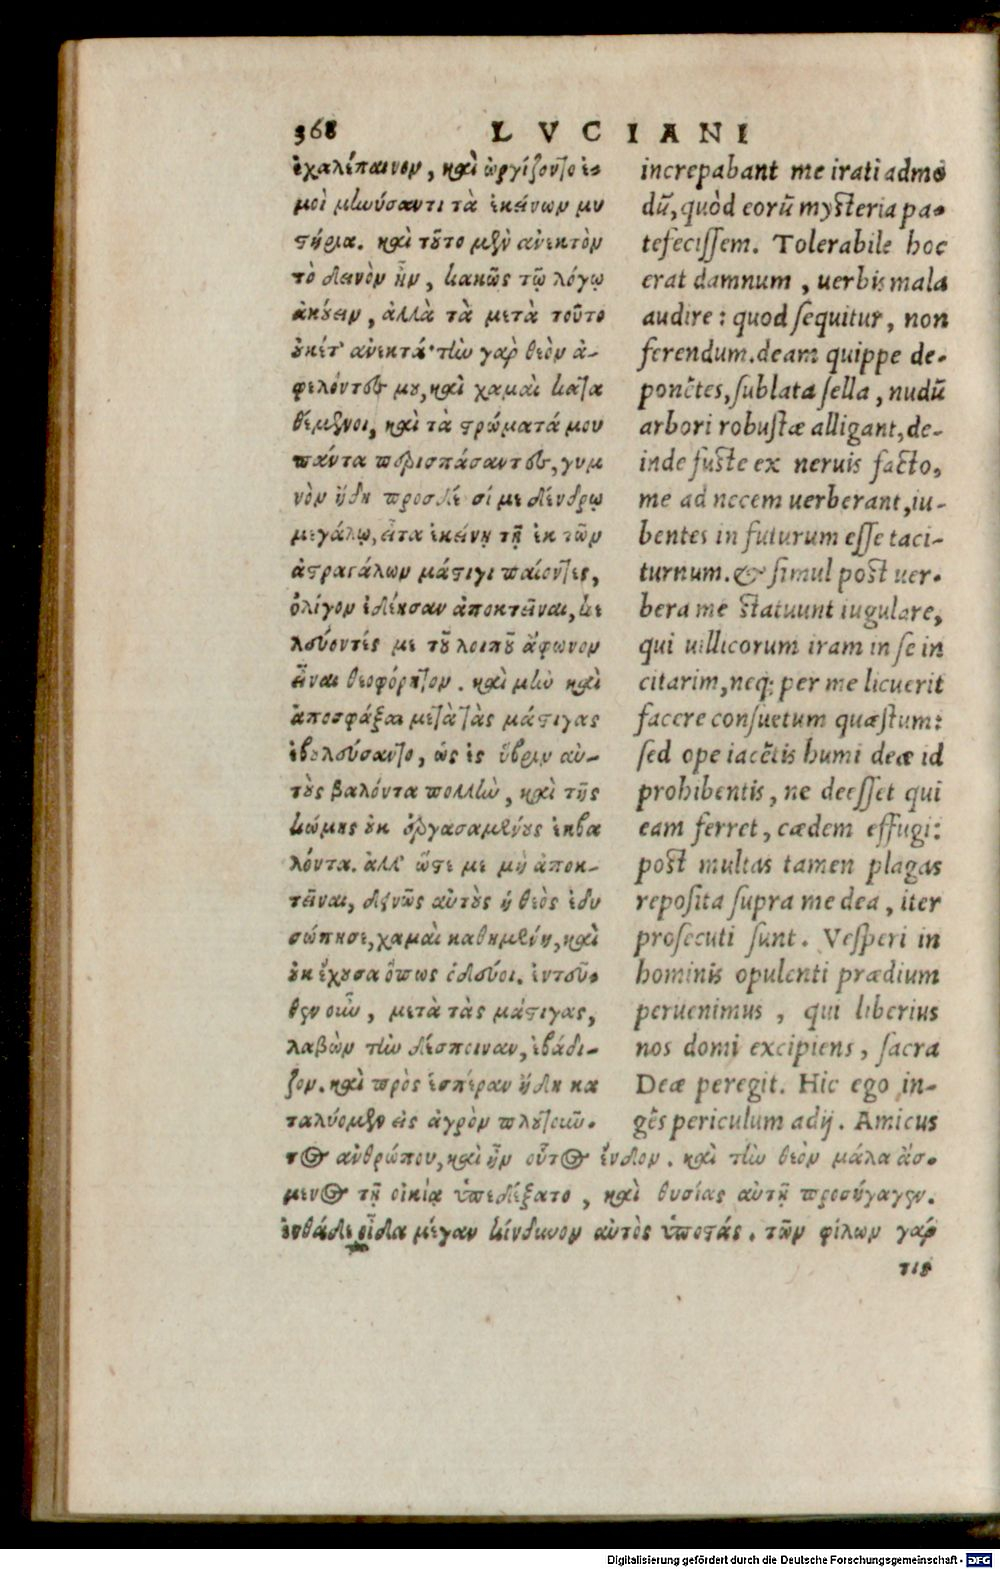 368 LVCIANI
ἐχαλέπαινον, καὶ ὠργίζοντο ἐ-
μοὶ μηνύσαντι τὰ ἐκείνων μυ
στήρια. καὶ τοῦτο μὲν ἀνεκτὸν
τὸ δεινὸν ἦν, κακῶς τῷ λόγῳ
ἀκούειν, ἀλλὰ τὰ μετὰ τοῦτο
οὐκέτ' ἀνεκτά· τὴν γὰρ θεὸν ἀ-
φελόντες μου, καὶ χαμαὶ κατα
θέμενοι, καὶ τὰ στρώματά μου
πάντα περισπάσαντες, γυμ
νὸν ἤδη προσδέουσί με δένδρῳ
μεγάλῳ, εἶτα ἐκείνῃ τῇ ἐκ τῶν
ἀστραγάλων μάστιγι παίοντες,
ὀλίγον ἐδέησαν ἀποκτεῖναι, κε
λεύοντές με τοῦ λοιποῦ ἄφωνον
εἶναι θεοφόρητον. καὶ μὴν καὶ
ἀποσφάξαι μετὰ τὰς μάστιγας
ἐβουλεύσαντο, ὡς ἐς ὕβριν αὐ-
τοὺς βαλόντα πολλὴν, καὶ τῆς
κώμης οὐκ ἐργασαμένους ἐκβα
λόντα. ἀλλ' ὥστε με μὴ ἀποκ-
τεῖναι, δεινῶς αὐτοὺς ἡ θεὸς ἐδυ
σώπησε, χαμαὶ καθημένη, καὶ
οὐκ ἔχουσα ὅπως ὁδεύοι. ἐντεῦ-
θεν οὖν, μετὰ τὰς μάστιγας,
λαβὼν τὴν δέσποιναν, ἐβάδι-
ζον. καὶ πρὸς ἑσπέραν ἤδη κα
ταλύομεν εἰς ἀγρὸν πλουτοῦν-
τος ἀνθρώπου, καὶ ἦν οὗτος ἔνδον. καὶ τὴν θεὸν μάλα ἄσ-
μενος τῇ οἰκίᾳ ὑπεδέξατο, καὶ θυσίας αὐτῇ προσήγαγεν.
ἐνθάδε οἶδα μέγαν κίνδυνον αὐτὸς ὑποστάς. τῶν φίλων γάρ
τις
increpabant me irati admo
dū, quòd eorū mysteria pa-
tefecissem. Tolerabile hoc
erat damnum, uerbis mala
audire: quod sequitur, non
ferendum. deam quippe de-
ponētes, sublata sella, nudū
arbori robustæ alligant, de-
inde fuste ex neruis facto,
me ad necem uerberant, iu-
bentes in futurum esse taci-
turnum. & simul post uer-
bera me statuunt iugulare,
qui uillicorum iram in se in
citarim, neq; per me licuerit
facere consuetum quæstum:
sed ope iacētis humi deæ id
prohibentis, ne deesset qui
eam ferret, cædem effugi:
post multas tamen plagas
reposita supra me dea, iter
prosecuti sunt. Vesperi in
hominis opulenti prædium
peruenimus, qui liberius
nos domi excipiens, sacra
Deæ peregit. Hic ego in-
gēs periculum adij. Amicus
Digitalisierung gefördert durch die Deutsche Forschungsgemeinschaft - DFG